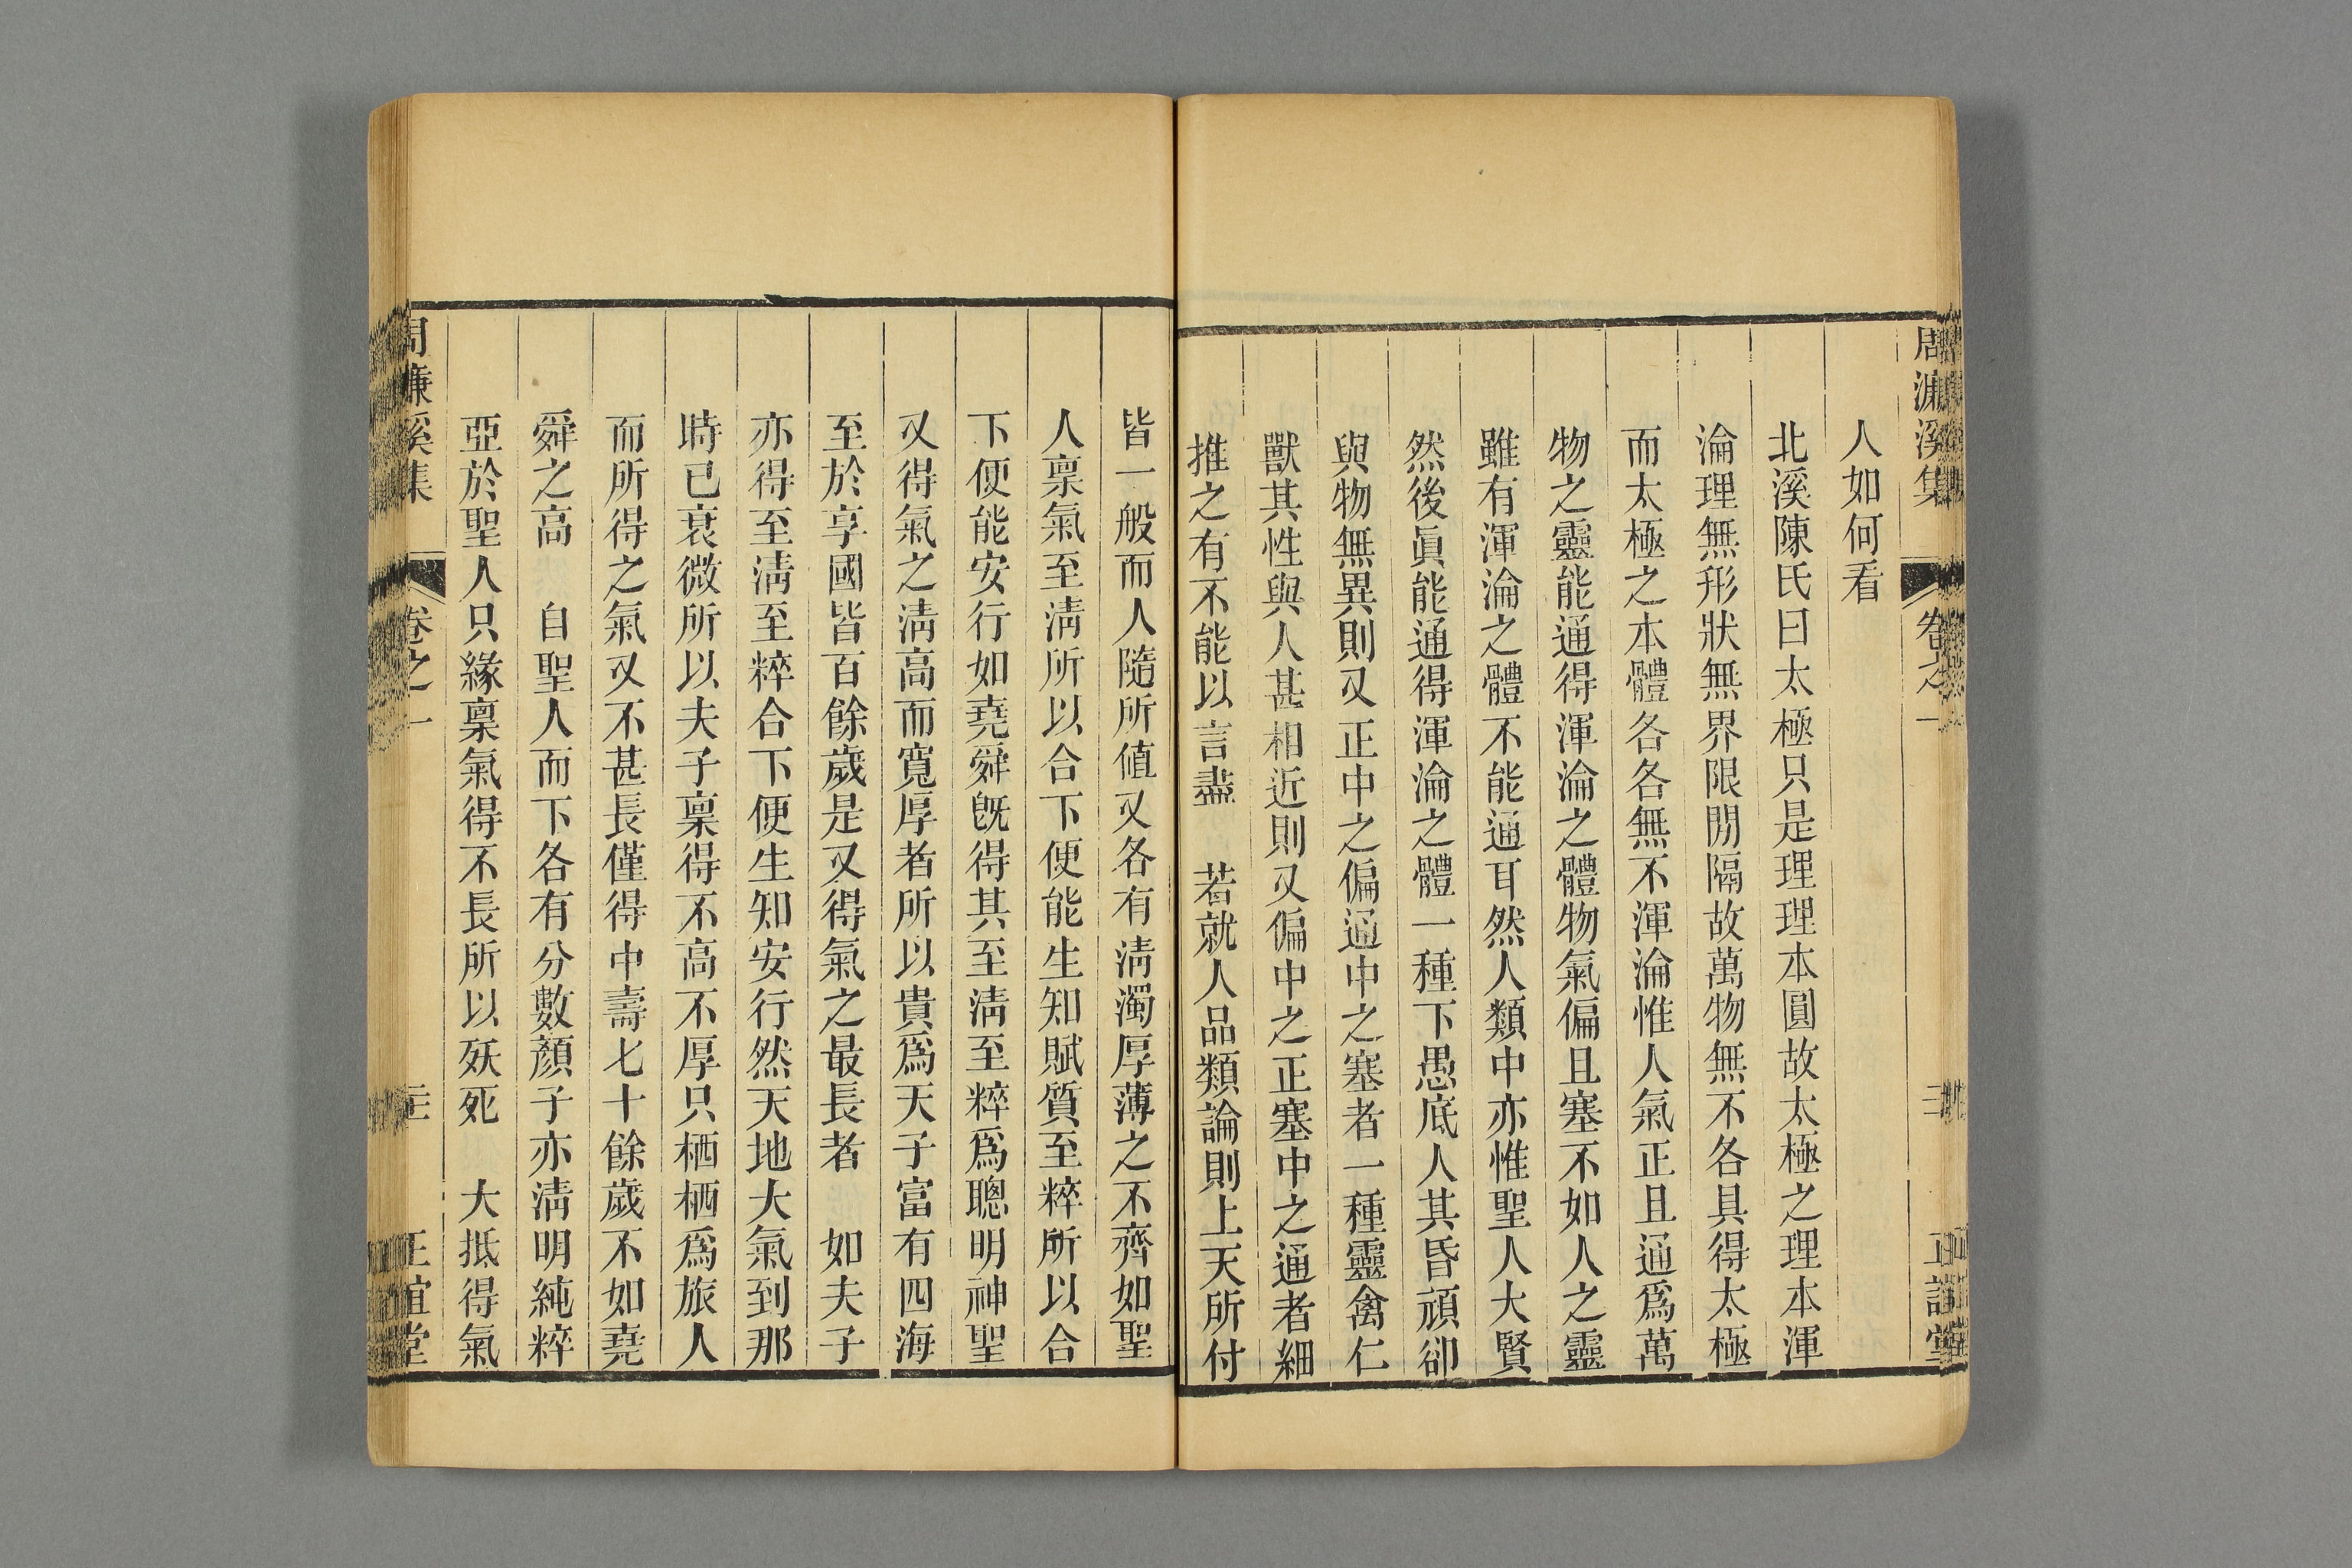 周濂溪集 卷之一 正誼堂
人如何看
北溪陳氏曰太極只是理理本圓故太極之理本渾
淪理無形狀無界限閒隔故萬物無不各具得太極
而太極之本體各各無不渾淪惟人氣正且通爲萬
物之靈能通得渾淪之體物氣偏且塞不如人之靈
雖有渾淪之體不能通耳然人類中亦惟聖人大賢
然後眞能通得渾淪之體一種下愚底人其昏頑卻
與物無異則又正中之偏通中之塞者一種靈禽仁
獸其性與人甚相近則又偏中之正塞中之通者細
推之有不能以言盡 若就人品類論則上天所付
皆一般而人隨所値又各有淸濁厚薄之不齊如聖
人稟氣至淸所以合下便能生知賦質至粹所以合
下便能安行如堯舜旣得其至淸至粹爲聰明神聖
又得氣之淸高而寬厚者所以貴爲天子富有四海
至於享國皆百餘歲是又得氣之最長者 如夫子
亦得至淸至粹合下便生知安行然天地大氣到那
時已衰微所以夫子稟得不高不厚只栖栖爲旅人
而所得之氣又不甚長僅得中壽七十餘歲不如堯
舜之高 自聖人而下各有分數顏子亦淸明純粹
亞於聖人只緣稟氣得不長所以殀死 大抵得氣
周濂溪集 卷之一 正誼堂